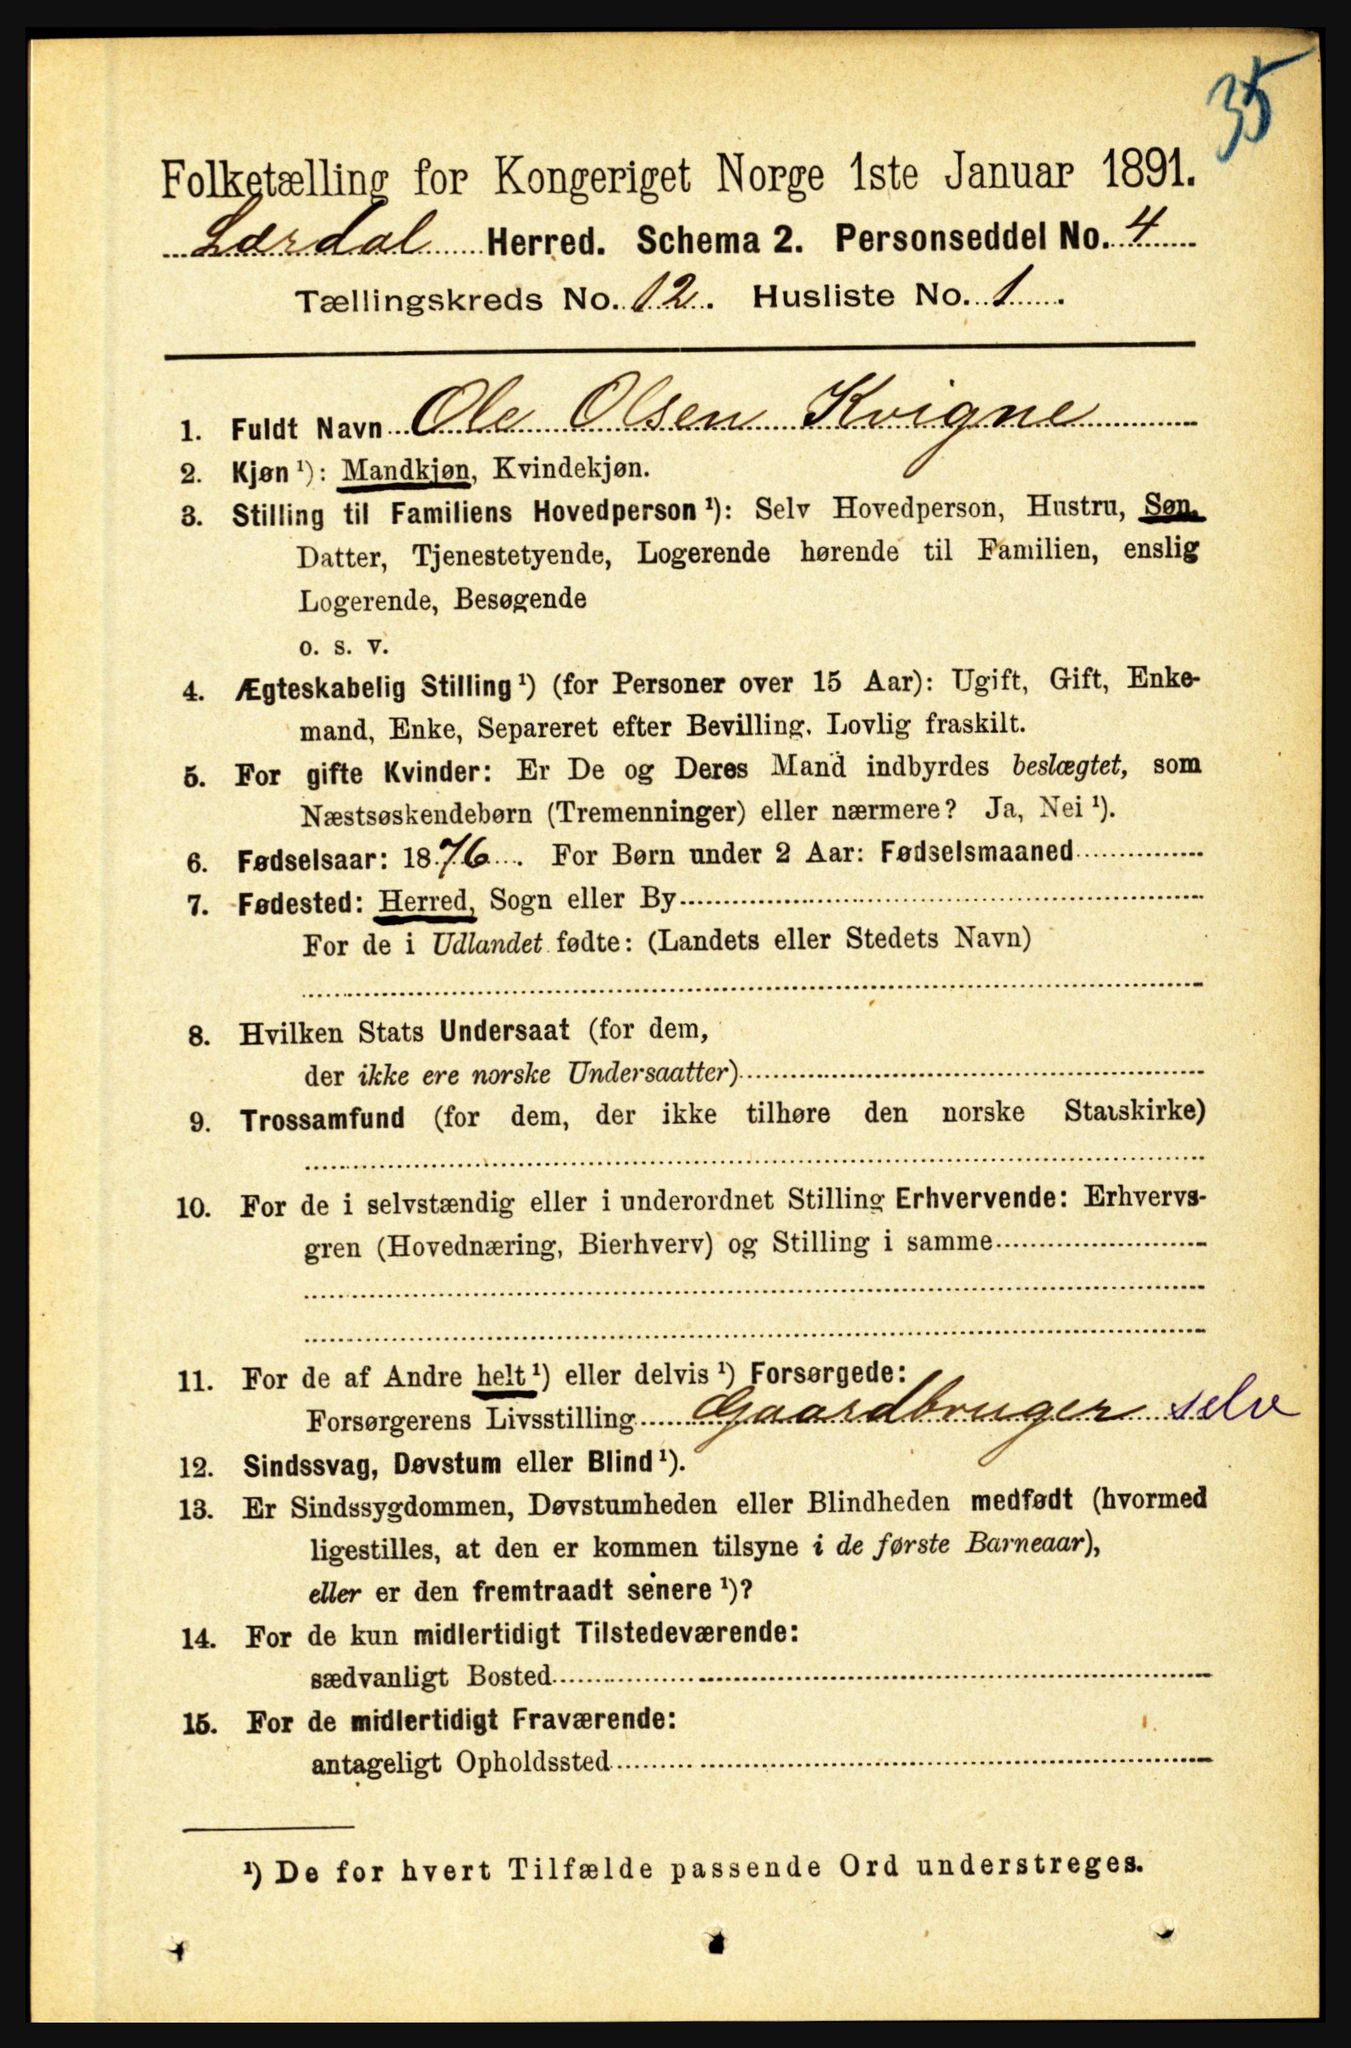 35
Folketælling for Kongeriget Norge 1ste Januar 1891.
Lærdal Herred. Schema 2. Personseddel No. 4
Tællingskreds No. 12. Husliste No. 1.
1. Fuldt Navn Ole Olsen Kvigne
2. Kjøn ¹): Mandkjøn, Kvindekjøn.
3. Stilling til Familiens Hovedperson ¹): Selv Hovedperson, Hustru, Søn,
Datter, Tjenestetyende, Logerende hørende til Familien, enslig
Logerende, Besøgende
o. s. v.
4. Ægteskabelig Stilling ¹) (for Personer over 15 Aar): Ugift, Gift, Enke-
mand, Enke, Separeret efter Bevilling. Lovlig fraskilt.
5. For gifte Kvinder: Er De og Deres Mand indbyrdes beslægtet, som
Næstsøskendebørn (Tremenninger) eller nærmere? Ja, Nei ¹).
6. Fødselsaar: 1876. For Børn under 2 Aar: Fødselsmaaned
7. Fødested: Herred, Sogn eller By
For de i Udlandet fødte: (Landets eller Stedets Navn)
8. Hvilken Stats Undersaat (for dem,
der ikke ere norske Undersaatter)
9. Trossamfund (for dem, der ikke tilhøre den norske Statskirke)
10. For de i selvstændig eller i underordnet Stilling Erhvervende: Erhvervs-
gren (Hovednæring, Bierhverv) og Stilling i samme
11. For de af Andre helt ¹) eller delvis ¹) Forsørgede:
Forsørgerens Livsstilling Gaardbruger selv
12. Sindssvag, Døvstum eller Blind ¹).
13. Er Sindssygdommen, Døvstumheden eller Blindheden medfødt (hvormed
ligestilles, at den er kommen tilsyne i de første Barneaar),
eller er den fremtraadt senere ¹)?
14. For de kun midlertidigt Tilstedeværende:
sædvanligt Bosted
15. For de midlertidigt Fraværende:
antageligt Opholdssted
¹) De for hvert Tilfælde passende Ord understreges.